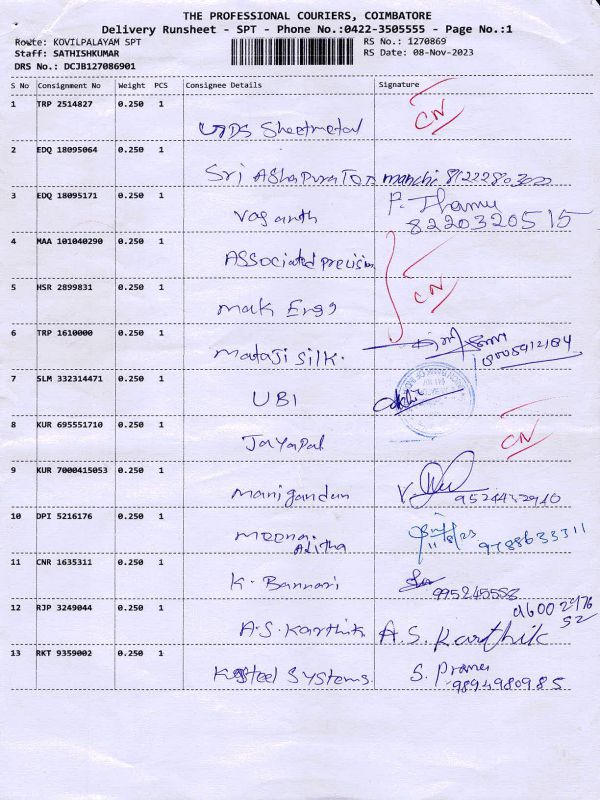 THE PROFESSIONAL COURIERS, COIMBATORE
Delivery Runsheet - SPT - Phone No.:0422-3505555 - Page No.:1
Route: KOVILPALAYAM SPT RS No.: 1270869
Staff: SATHISHKUMAR RS Date: 08-Nov-2023
DRS No.: DCJB127086901
S No Consignment No Weight PCS Consignee Details Signature
1 TRP 2514827 0.250 1 Sheetmetal CN
2 EDQ 18095064 0.250 1 Sri Ashapura
3 EDQ 18095171 0.250 1 Vasanth 8220320515
4 MAA 101040290 0.250 1 Associated precision
5 HSR 2899831 0.250 1 Mak Engg CN
6 TRP 1610000 0.250 1 Mataji Silk.
7 SLM 332314471 0.250 1 UBI
8 KUR 695551710 0.250 1 Jayapal CN
9 KUR 7000415053 0.250 1 Manigandan
10 DPI 5216176 0.250 1 9788633311
11 CNR 1635311 0.250 1 K. Bannari
12 RJP 3249044 0.250 1 A.S. Karthik A.S. Karthik
13 RKT 9359002 0.250 1 Systems. 9894980985